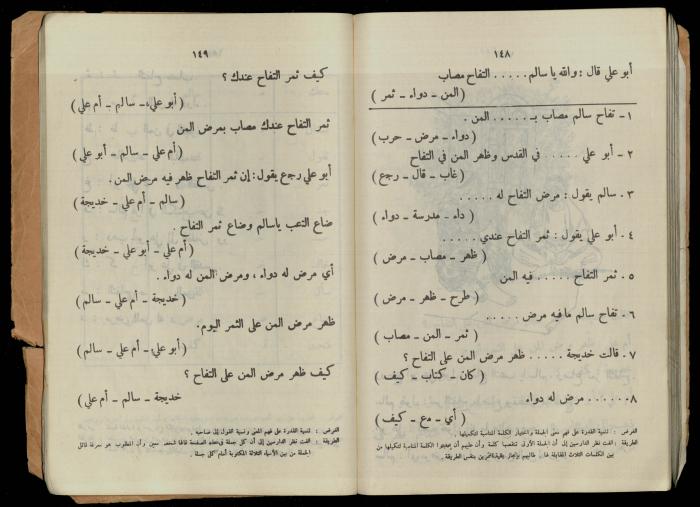 ١٤٨
أبو علي قال : والله يا سالم . . . . . التفاح مصاب
( المن ـ دواء ـ ثمر )
١ ـ تفاح سالم مصاب بـ . . . . . المن .
( دواء ـ مرض ـ حرب )
٢ ـ أبو علي . . . . . في القدس وظهر المن في التفاح
( غاب ـ قال ـ رجع )
٣ . سالم يقول : مرض التفاح له . . . . .
( داء ـ مدرسة ـ دواء )
٤ . أبو علي يقول : ثمر التفاح عندي . . . . .
( ظهر ـ مصاب ـ مرض )
٥ . ثمر التفاح . . . . . فيه المن
( طرح ـ ظهر ـ مرض )
٦ . تفاح سالم ما فيه مرض . . . . .
( ثمر ـ المن ـ مصاب )
٧ . قالت خديجة . . . . . ظهر مرض المن على التفاح ؟
( كان ـ كتاب ـ كيف )
٨. . . . . . . مرض له دواء
( أي ـ مع ـ كيف )
الغرض : تنمية القدرة على فهم معنى الجملة واختيار الكلمة المناسبة لتكملتها .
الطريقة : الفت نظر الدارسين إلى أن الجملة الأولى تنقصها كلمة وأن عليهم أن يجدوا الكلمة المناسبة لتكملتها من
بين الكلمات الثلاث المقابلة لها . طالبهم بإنجاز بقية التمرين بنفس الطريقة .
١٤٩
كيف ثمر التفاح عندك ؟
( أبو علي ـ سالم ـ أم علي )
ثمر التفاح عندك مصاب بمرض المن
( أم علي ـ سالم ـ أبو علي )
أبو علي رجع يقول : إن ثمر التفاح ظهر فيه مرض المن .
( سالم ـ أم علي ـ خديجة )
ضاع التعب يا سالم وضاع ثمر التفاح .
( أم علي ـ أبو علي ـ خديجة )
أي مرض له دواء ، ومرض المن له دواء .
( خديجة ـ أم علي ـ سالم )
ظهر مرض المن على الثمر اليوم .
( أبو علي ـ أم علي ـ سالم )
كيف ظهر مرض المن على التفاح ؟
خديجة ـ سالم ـ أم علي )
الغرض : تنمية القدرة على فهم المعنى ونسبة القول إلى صاحبه .
الطريقة : الفت نظر الدارسين إلى أن كل جملة في هذه الصفحة قالها شخص معين وأن المطلوب هو معرفة قائل
الجملة من بين الأسماء الثلاثة المكتوبة أمام كل جملة .